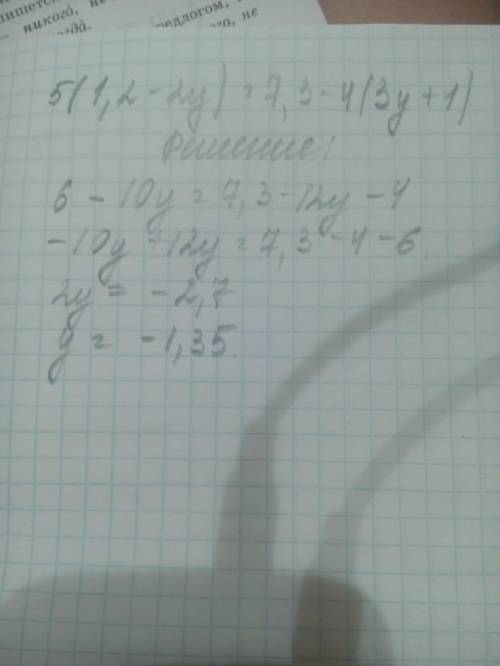 пишется
— никогó, не
редлогом,
го, не
5(1,2-2y)=7,3-4(3y+1)
Решение:
6-10y=7,3-12y-4
-10y+12y=7,3-4-6.
2y= -2,7
y= -1,35.